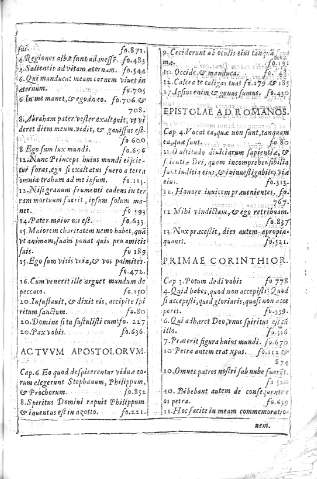 sui. fo.871.
4. Regiones albæ sunt ad messe. fo.483
5. Salientis ad vitam æternam. fo.544
6. Qui manducat meum carnem vivet in
æternum. fo.705
6. In me manet, & ego in eo. fo.706 &
708.
8. Abraham pater vester exultavit, ut vi
deret diem meum, vidit, & gavisus est.
fo.600
8. Ego sum lux mundi. fo.656
12. Nunc Princeps huius mundi ejicie-
tur foras, ego si exaltatus fuero a terra
omnia traham ad me ipsum. fo.113.
12. Nisi granum frumenti cadens in ter
ram mortuum fuerit, ipsum solum ma-
net. fo.193
14. Pater maior me est. fo.633.
15. Maiorem charitatem nemo habet, quã
ut animam suam ponat quis pro amicis
suis. fo.189
15. Ego sum vitis vera, & vos palmites.
fo.472.
16. Cum venerit ille arguet mundum de
peccato. fo.150
20. Insuflavit, & dixit eis, accipite spi
ritum sanctum. fo.80
20. Domine si tu sustulisti eum fo. 227
20. Pax vobis. fo.636.
ACTVVM APOSTOLORVM.
Cap.6. Eo quod despicerentur viduæ eo-
rum elegerunt Stephanum, Philippum,
& Prochorum. fo.852
8. Spiritus Domini rapuit Philippum
& inventus est in azotto. fo.221.
9. Ceciderunt ab oculis eius tanquã
mæ. fo.191
10. Occide, & manduca.
12. Calcea te caligas tuas fo.179 & 183
17. Ipsius enim & genus sumus. fo.430
EPISTOLAE AD ROMANOS.
Cap.4. Vocat ea, quæ non sunt, tanquam
ea quæ sunt. fo.80
11. O altitudo divitiarum sapientiæ, &
scientiæ Dei, quam incomprehensibilia
sunt iudicia eius, & investigabiles viæ
eius. fo.313.
12. Honore invicem prævenientes. fo.
767.
12. Mihi vindictam, & ego retribuam.
fo.837
13. Nox præcessit, dies autem appropin-
quavit. fo.521.
PRIMAE CORINTHIOR.
Cap 3. Potum dedi vobis fo 778
4. Quid habes, quod non accepisti? Quod
si accepisti, quid gloriaris, quasi non acce
peris. fo.339.
6. Qui adhæret Deo, unus spiritus est cũ
illo.
7. Præterit figura huius mundi. fo.670
10 Petra autem erat xpus. fo.112 &
874
10. Omnes patres nostri sub nube fuerũt.
10. Bibebant autem de consequente
eos petra. fo.639
11. Hoc facite in meam commemoratio-
nem.